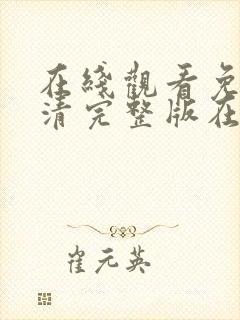 在綫觀看免
清完整版在
崔元英